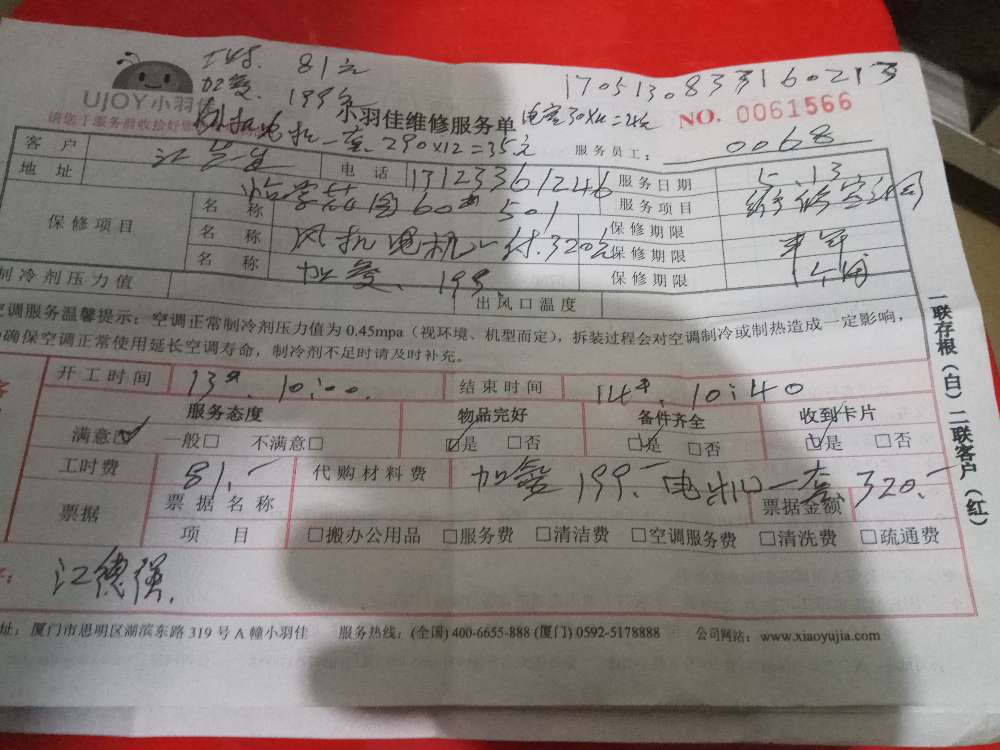 工时. 81元
加氨. 199元
1705130833160213
UJOY小羽佳
小羽佳维修服务单
NO. 0061566
请您于服务前收拾好
外机电机一套. 290×12=35元
电容30×4=24元
服务员工: 0068
客户 江先生 电话 13123361246 服务日期 5.13.
地址 60 501 服务项目
保修项目 名称 风机电机一付.320元 保修期限 半年
名称 加氨. 199 保修期限 1个月
名称 保修期限
制冷剂压力值 出风口温度
空调服务温馨提示: 空调正常制冷剂压力值为 0.45mpa (视环境、机型而定), 拆装过程会对空调制冷或制热造成一定影响,
确保空调正常使用延长空调寿命, 制冷剂不足时请及时补充。
开工时间 13日. 10:00. 结束时间 14日. 10:40
服务态度 物品完好 备件齐全 收到卡片
满意☑ 一般□ 不满意□ ☑是 □否 ☑是 □否 ☑是 □否
工时费 81.- 代购材料费 加氨 199.- 电机一套. 320.-
票据 票据名称 票据金额
项目 □搬办公用品 □服务费 □清洁费 □空调服务费 □清洗费 □疏通费
江德强.
址: 厦门市思明区湖滨东路 319 号 A 幢小羽佳 服务热线: (全国) 400-6655-888 (厦门) 0592-5178888 公司网站: www.xiaoyujia.com
一联存根(白)二联客户(红)